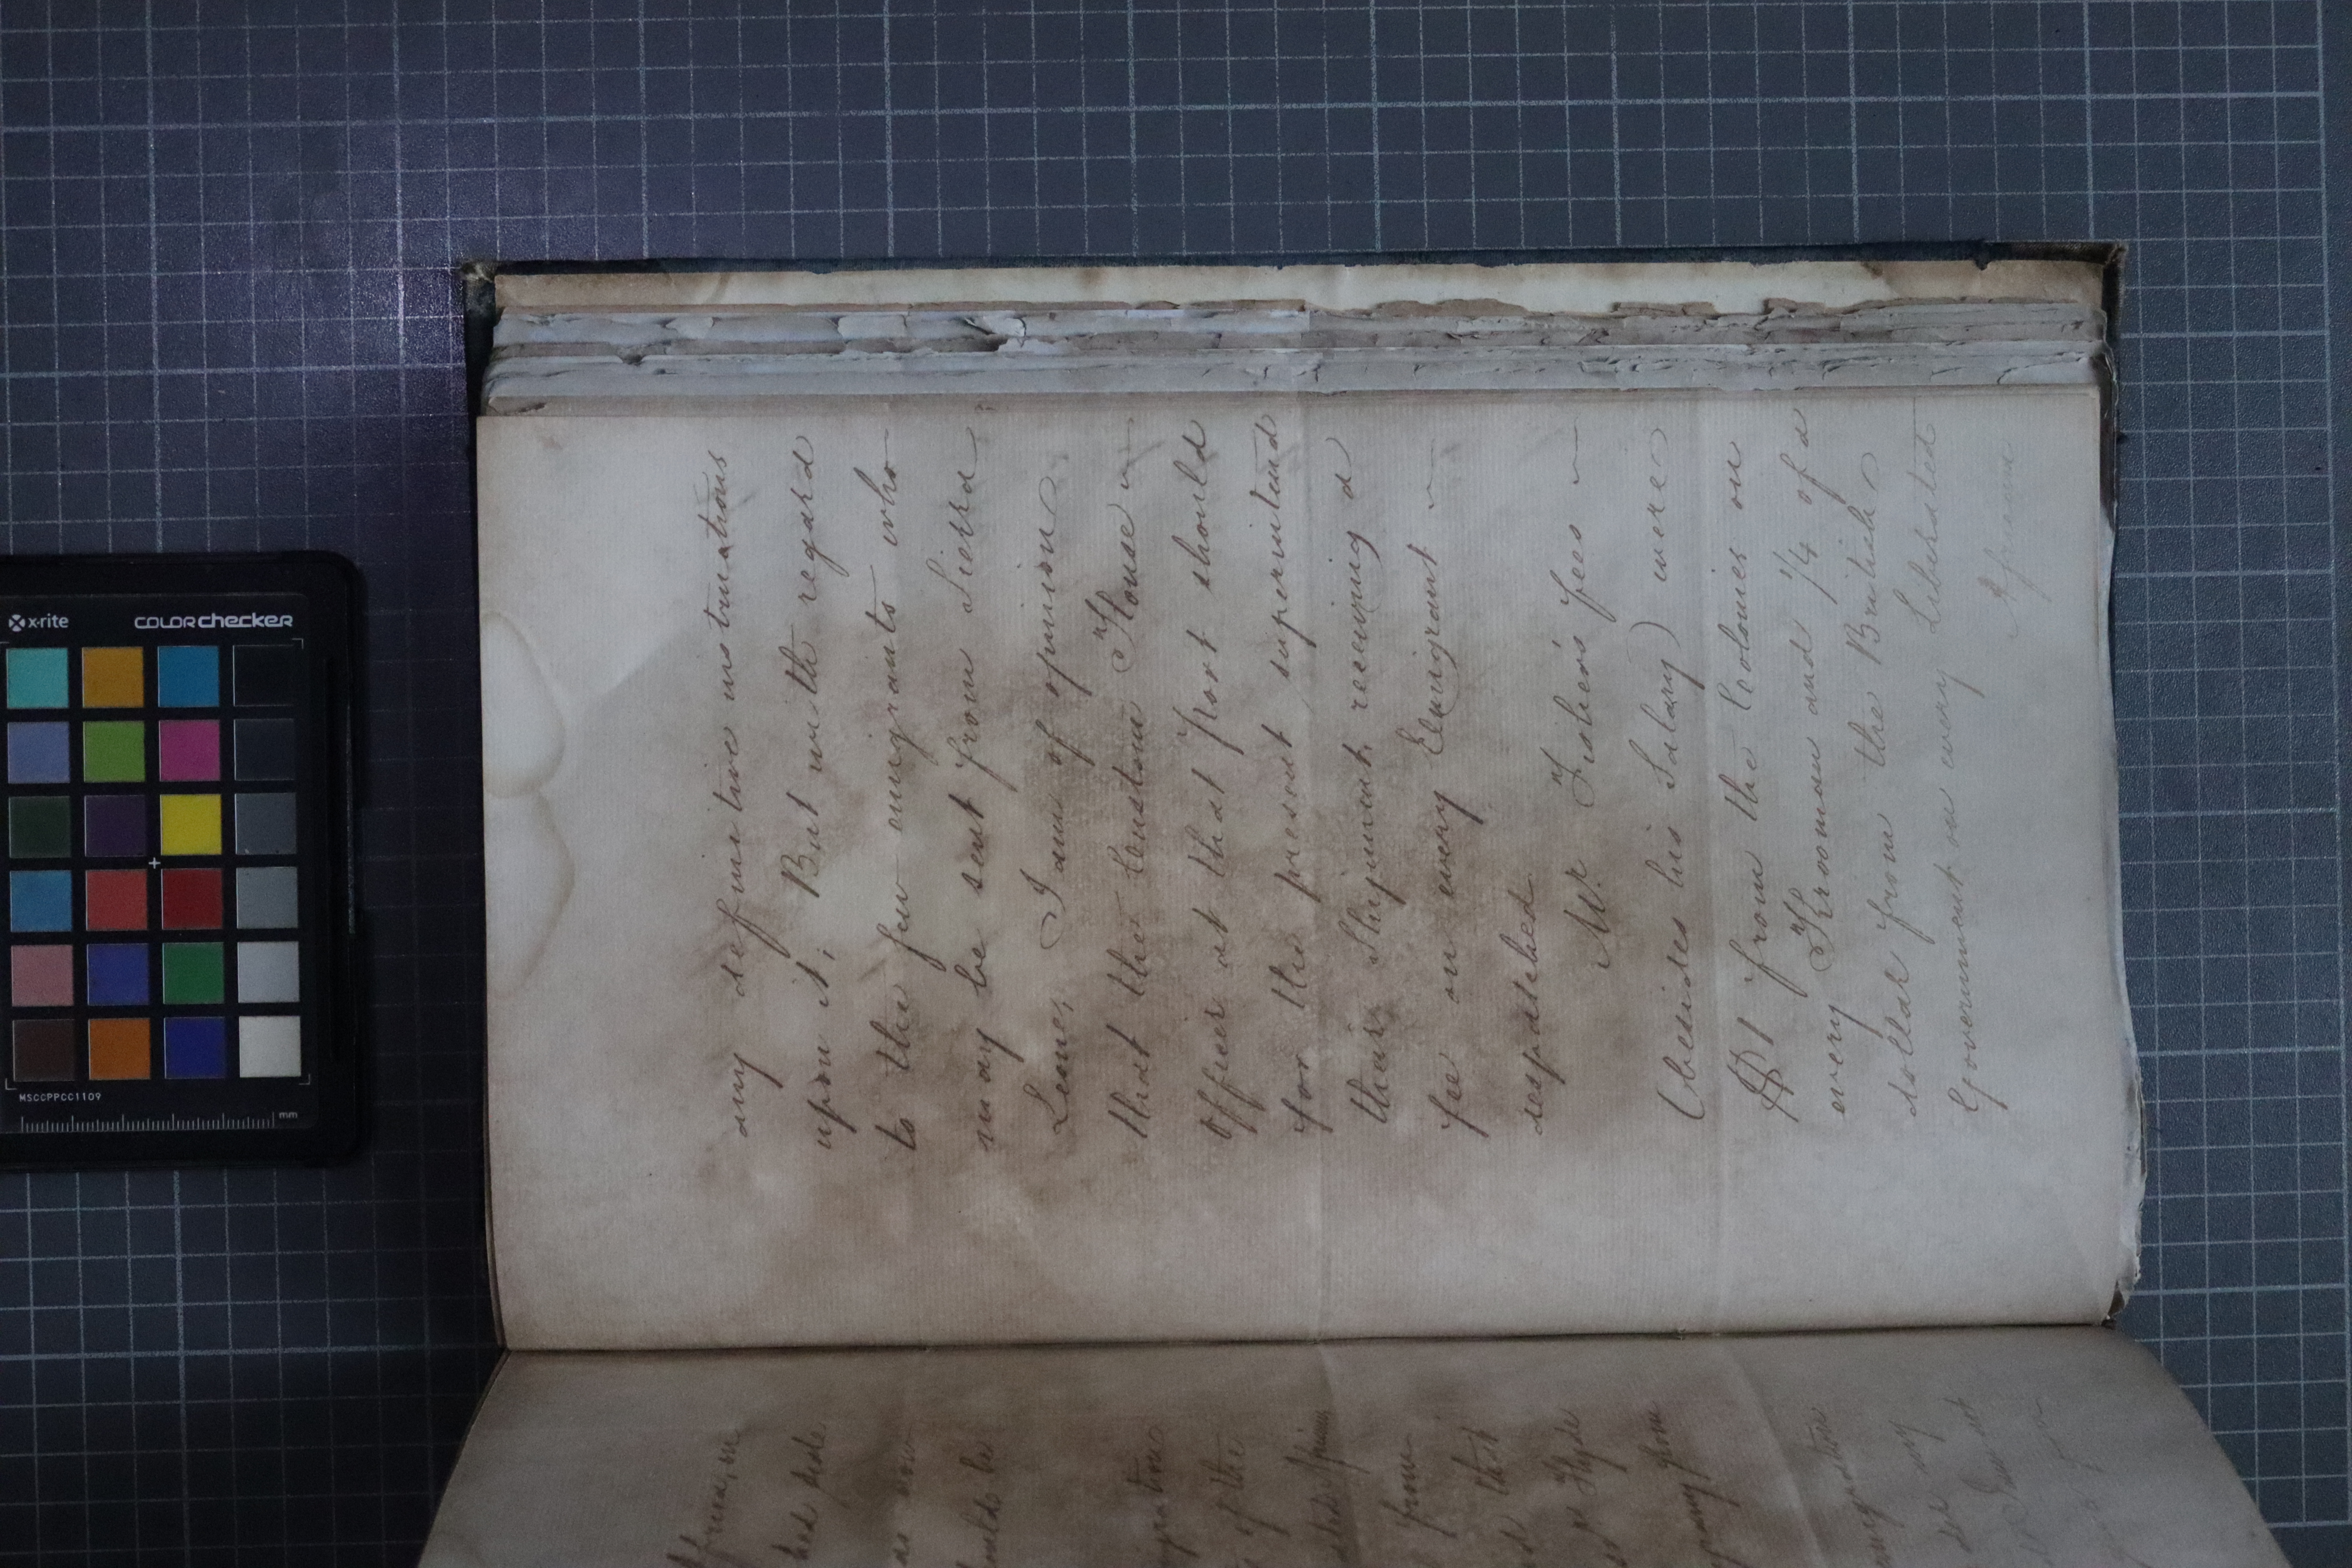 any definitive instructions
upon it; But with regard
to the few emigrants who
may be sent from Sierra
Leone, I am of opinion
that the Custom House
Officer at that port should
for the present superintend
their Shipment, receiving a
fee on every Emigrant
despatched.
Mr. Fisher's fees
(besides his Salary) were
$1 from the Colonies on
every Krooman and 1/4 of a
dollar from the British
Government on every Liberated
African
had made
as now
should be
of the
from
that
Hyde
many from
emigration
x-rite
colorchecker
MSCCPPCC1109
mm